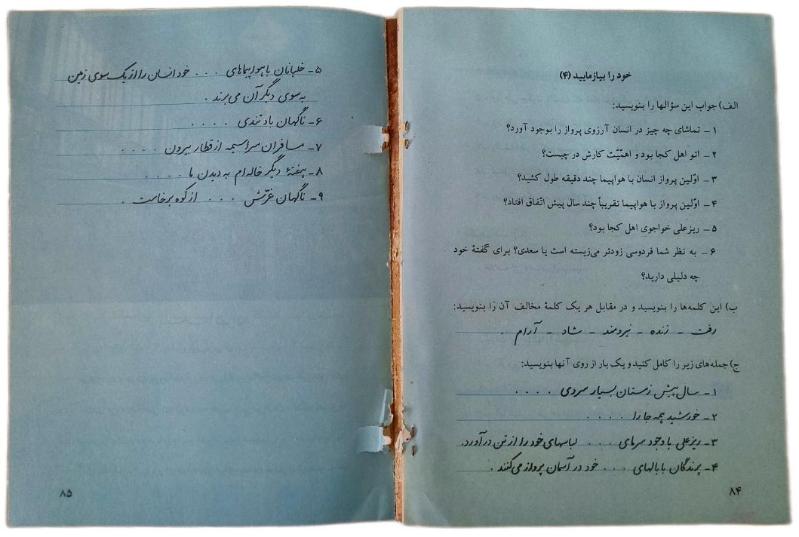 خود را بیازمایید (۴)
الف) جواب این سؤالها را بنویسید:
۱ - تماشای چه چیز در انسان آرزوی پرواز را بوجود آورد؟
۲ - اتو اهل کجا بود و اهمّیّت کارش در چیست؟
۳ - اوّلین پرواز انسان با هواپیما چند دقیقه طول کشید؟
۴ - اوّلین پرواز با هواپیما تقریباً چند سال پیش اتّفاق افتاد؟
۵ - ریزعلی خواجوی اهل کجا بود؟
۶ - به نظر شما فردوسی زودتر می‌زیسته است یا سعدی؟ برای گفتهٔ خود
چه دلیلی دارید؟
ب) این کلمه‌ها را بنویسید و در مقابل هر یک کلمهٔ مخالف آن را بنویسید:
رفت - زنده - نیرومند - شاد - آرام .
ج) جمله‌های زیر را کامل کنید و یک بار از روی آنها بنویسید:
۱- سال پیش زمستان بسیار سردی . . . .
۲- خورشید همه جا را . . . .
۳- ریزعلی با وجود سرمای . . . . لباسهای خود را از تن در آورد.
۴- پرندگان با بالهای . . . . خود در آسمان پرواز می‌کنند .
۸۴
۵- خلبانان با هواپیماهای . . . خود انسان را از یک سوی زمین
به سوی دیگر آن می‌برند .
۶- ناگهان باد تندی . . . .
۷- مسافران سراسیمه از قطار بیرون . . . .
۸- هفتهٔ دیگر خاله‌ام به دیدن ما . . . . .
۹- ناگهان غرّش . . . . از کوه برخاست .
۸۵